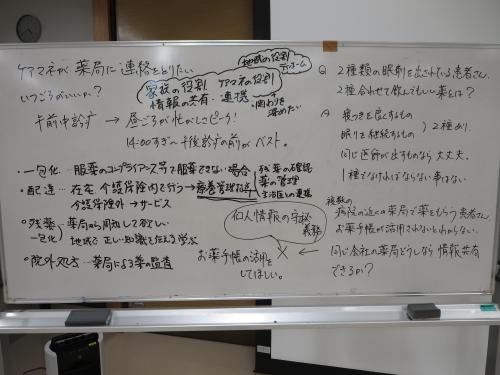 ケアマネが薬局に連絡をとりたい
いつごろがいいか?
午前中診療 → 昼ごろが忙がしさピーク!
14:00すぎ〜午後診療の前がベスト。
地域の役割
家族の役割 ケアマネの役割
情報の共有・連携
・関わりを
深めたい
・一包化…服薬のコンプライアンス等で服薬できない場合
残薬の確認
薬の管理
・配達…在宅 介護保険内で行う→療養管理指導
介護保険外→サービス
・残薬
一包化
薬局から周知して欲しい
地域で正しい知識を伝える 学ぶ
・院外処方…薬局による薬の監査
個人情報の守秘
義務
お薬手帳の活用を
してほしい。
Q 2種類の眠剤を出されている患者さん
2種合わせて飲んでもいい薬とは?
A 寝つきを良くするもの
眠りを継続するもの
2種あり。
同じ医師が出すものなら大丈夫。
1種でなければならない事はない
複数の
病院の近くの薬局で薬をもらう患者さん
お薬手帳が活用されないとわからない。
同じ会社の薬局どうしなら情報共有
できるか?